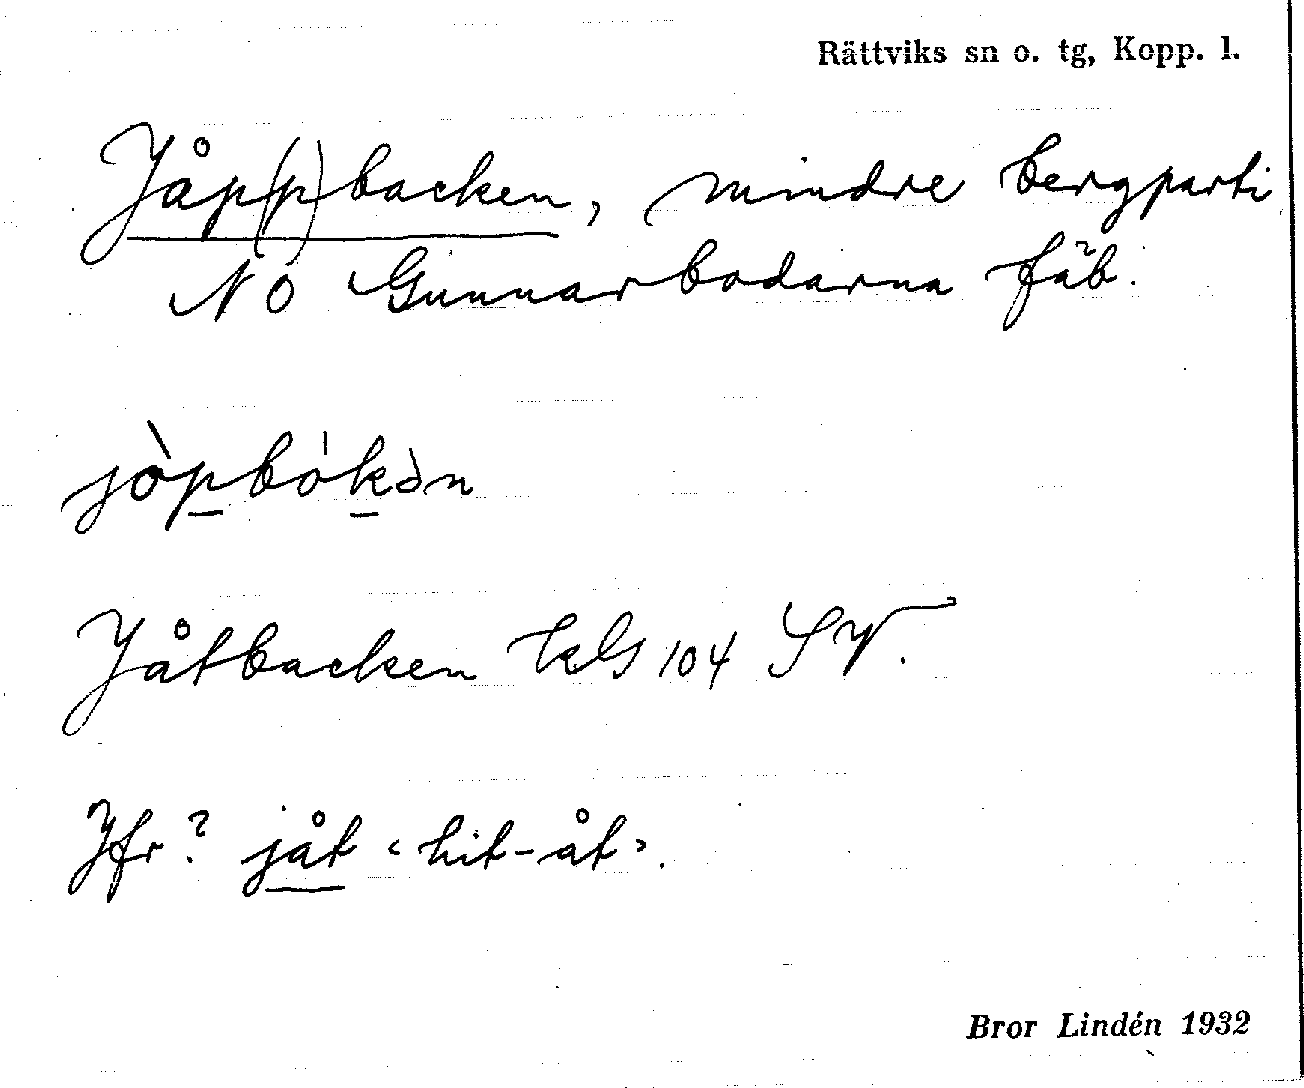 Rättviks sn o. tg, Kopp. l.
Jåp(p)backen, mindre bergparti
NO Gunnarbodarna fäb.
jòpbókən
Jåtbacken tkbl 104 SV.
Jfr? jåt ‹hit-åt›.
Bror Lindén 1932